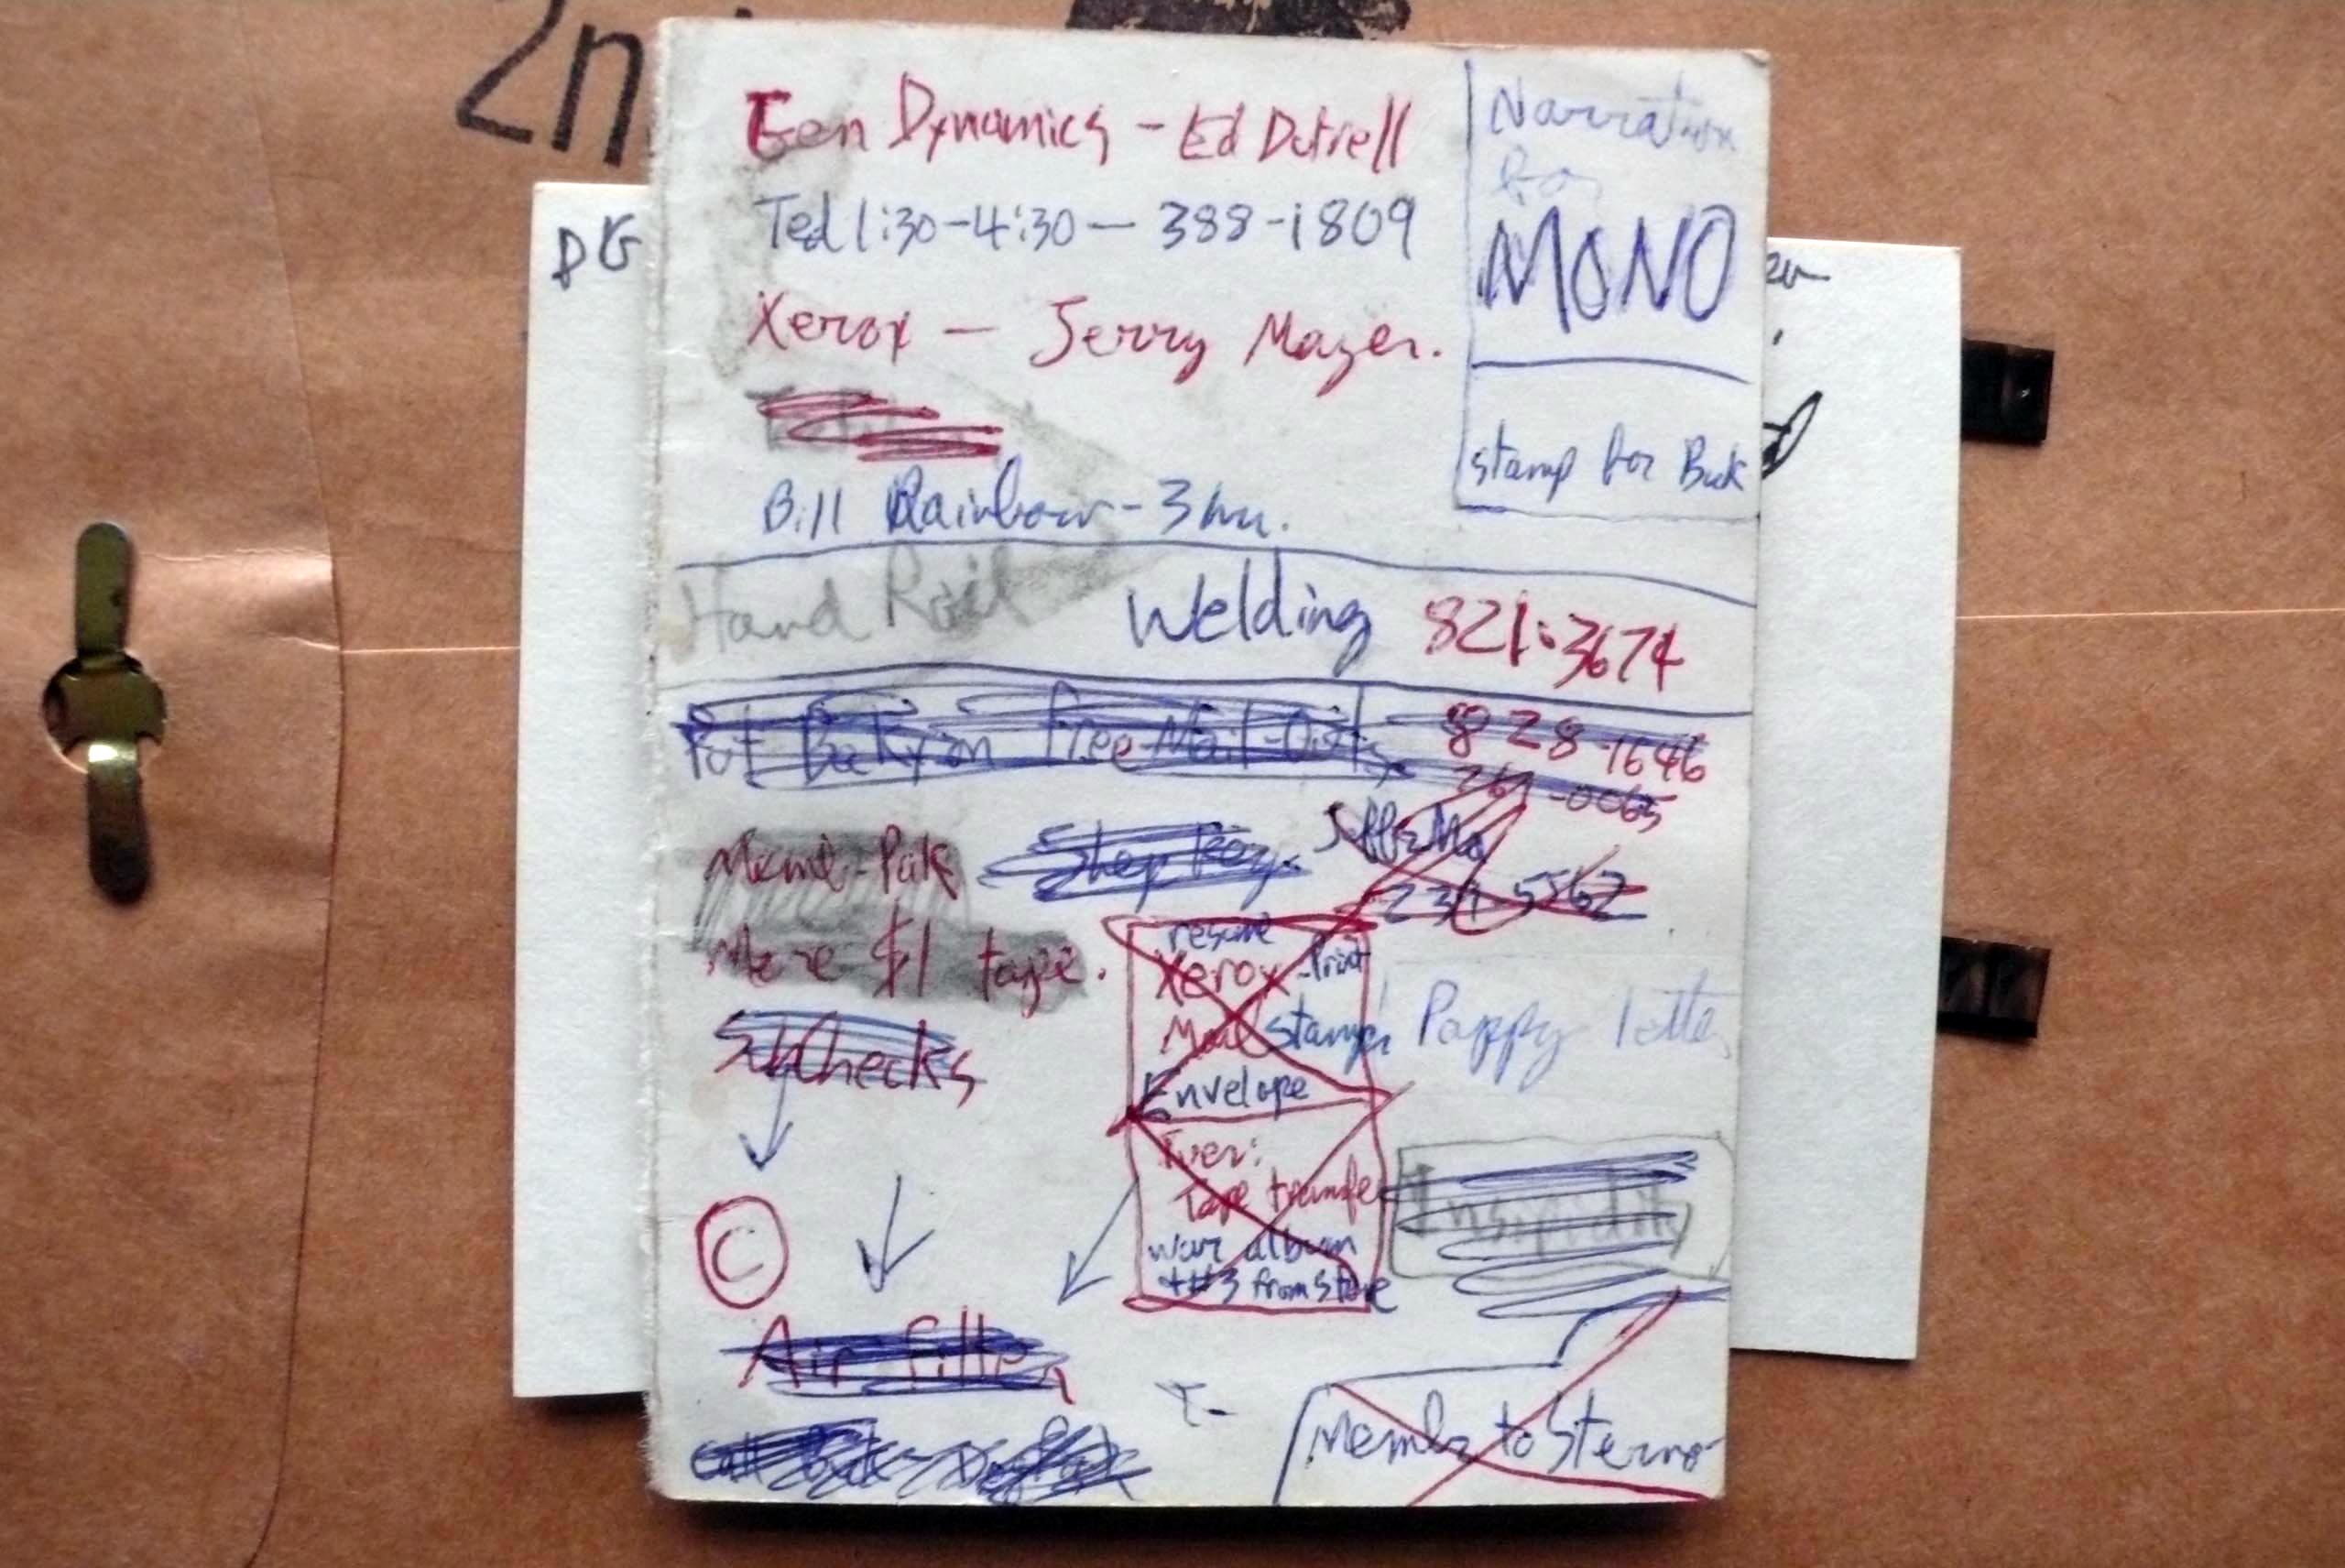 2n
DG
Gen Dynamics - Ed Dutrell
Ted 1:30-4:30 — 388-1809
Xerox — Jerry Mayer.
Bill Rainbow - 3 hru.
Narration
for
MONO
stamp for Buck
Hand Rail Welding 821-3674
Put Becky on Free Mail-Out
828-1646
269-0065
Meml-Pak
Shop Key
239-5562
More $1 tape.
SubChecks
resume
Xerox - Print
Mail stamps
Envelope
Pappy letter
Iver:
Tape transfer
war album
+#3 from store
Insipidity
C
Air Filter
Call
T-
Membr to Sterno